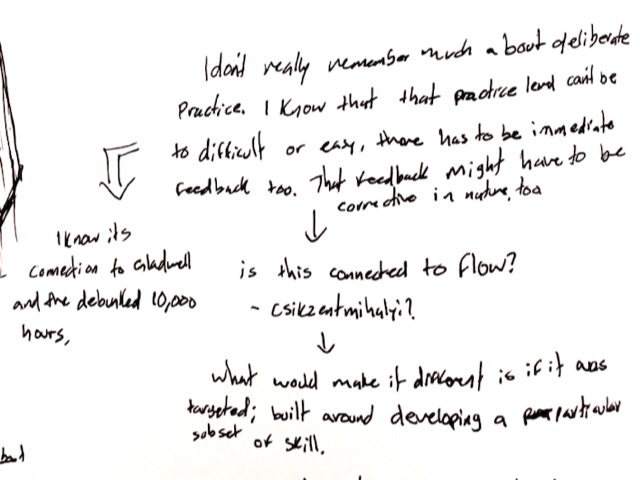 I don't really remember much about deliberate
Practice. I know that that practice level can't be
to difficult or easy, there has to be immediate
feedback too. That feedback might have to be
corrective in nature, too
I know its
connection to Gladwell
and the debunked 10,000
hours,
is this connected to flow?
- Csikzentmihalyi?
what would make it different is if it was
targeted; built around developing a particular
subset of skill.